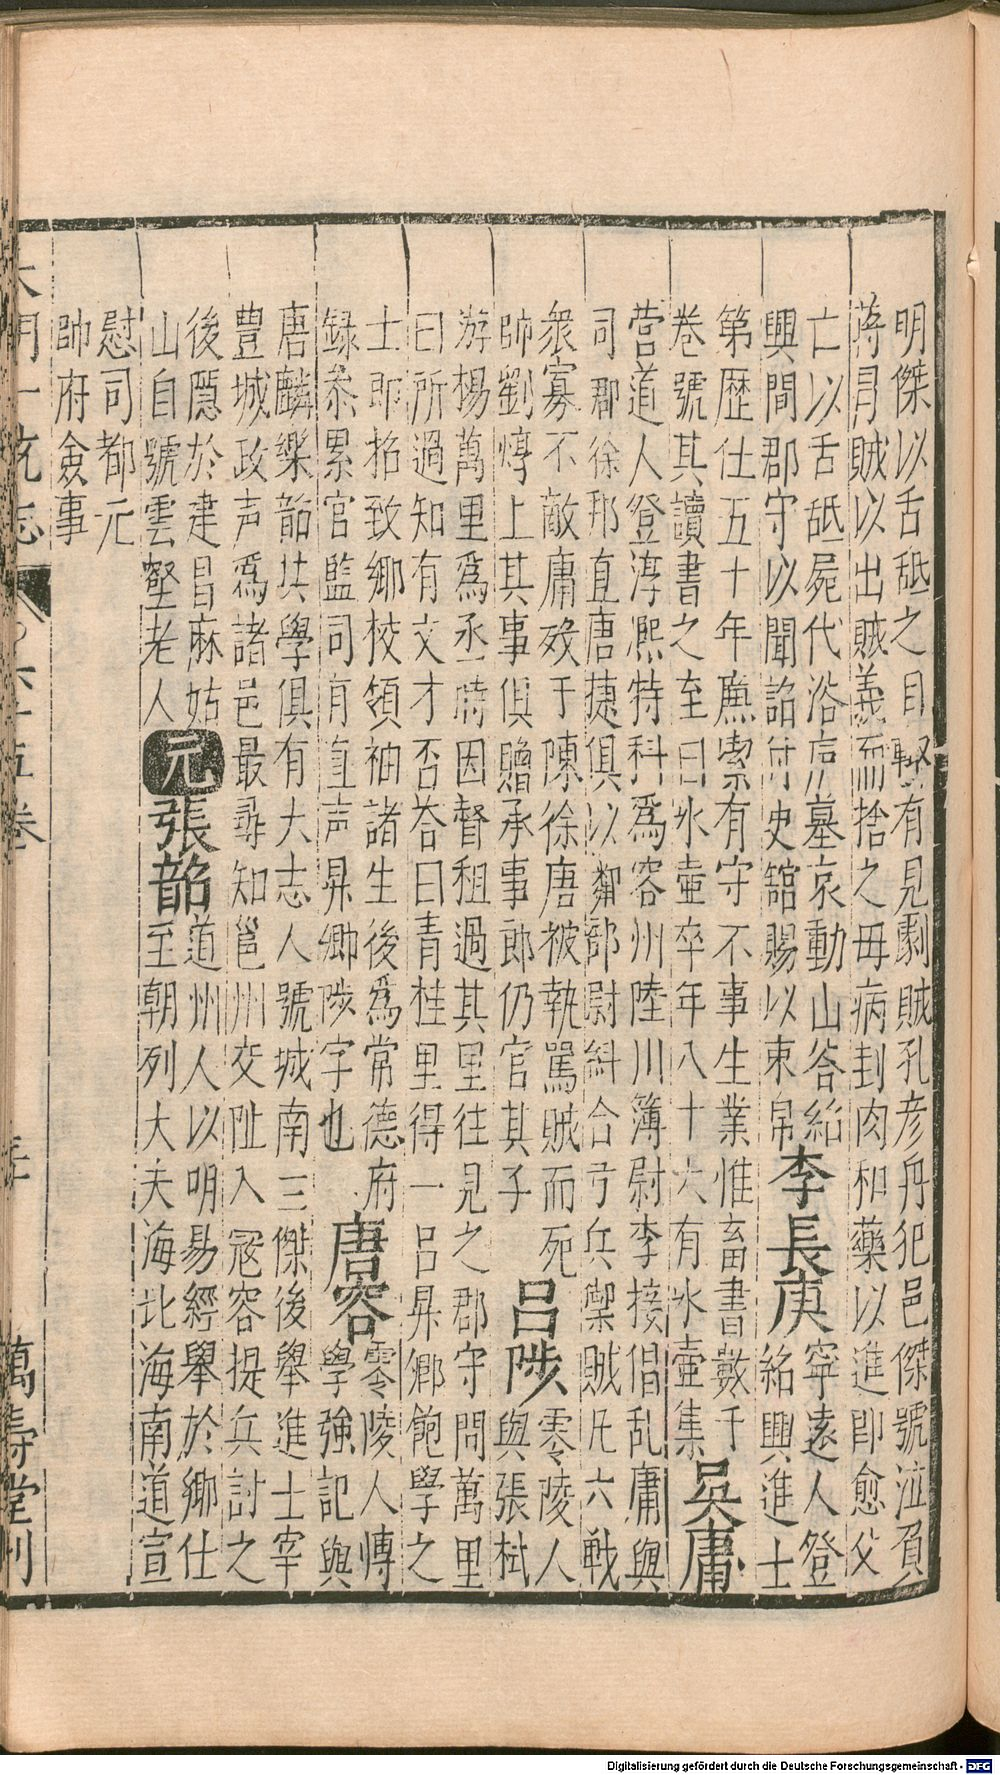 明傑以舌舐之目瞖有見劇賊孔彥舟犯邑傑號泣負
蒋冒賊以出賊義而捨之毋病刲肉和藥以進即愈父
亡以舌舐屍代浴廬墓哀動山谷紹
興間郡守以聞詔付史舘賜以束帛
李長庚
寧遠人登
紹興進士
第歷仕五十年廉索有守不事生業惟畜書數千
卷號其讀書之至曰氷壷卒年八十六有氷壷集
吳庸
營道人登淳熈特科爲容州陸川簿尉李接倡乱庸與
司郡徐邦直唐捷俱以鄰部尉糾合弓兵禦賊凡六戰
衆寡不敵庸歿于陳徐唐被執罵賊而死
帥劉焞上其事俱贈承事郎仍官其子
呂陟
零陵人
與張栻
游楊萬里爲丞時因督租過其里往見之郡守問萬里
曰所過知有文才否荅曰青桂里得一呂昇卿飽學之
士即招致鄉校領袖諸生後爲常德府
録叅累官監司有直声昇卿陟字也
唐容
零陵人慱
學強記與
唐麟樂韶共學俱有大志人號城南三傑後舉進士宰
豊城政声爲諸邑最尋知邕州交阯入冦容提兵討之
後隱於建昌麻姑
山自號雲壑老人
元
張韶
道州人以明易經舉於鄉仕
至朝列大夫海北海南道宣
慰司都元
帥府僉事
大明一統志
六十五卷
萬壽堂刊
Digitalisierung gefördert durch die Deutsche Forschungsgemeinschaft - DFG